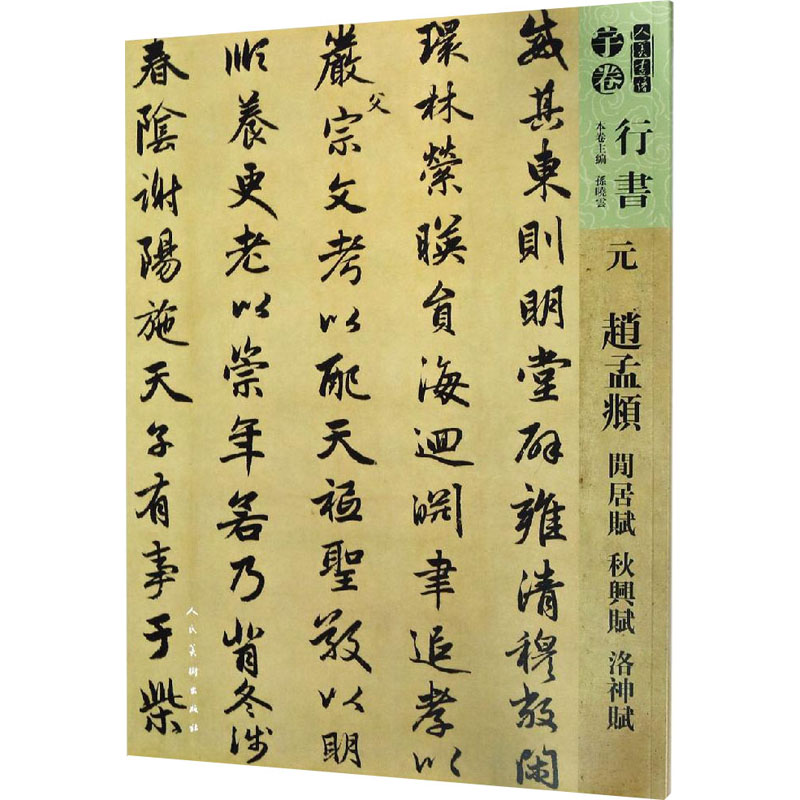 人美書譜
宇卷
行書
本卷主編 孫曉雲
元 趙孟頫 閒居賦 秋興賦 洛神賦
威其東則明堂辟雍清穆敞閑
環林縈暎員海迴淵聿追孝以
嚴父宗文考以配天祗聖敬以明
順養更老以崇年若乃背冬涉
春陰謝陽施天子有事于柴
人民美術出版社